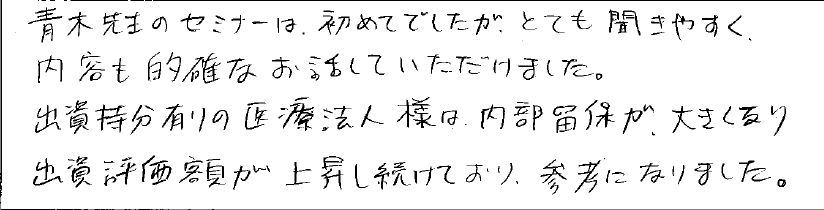 青木先生のセミナーは、初めてでしたが、とても聞きやすく、
内容も的確なお話していただけました。
出資持分有りの医療法人様は、内部留保が、大きくなり
出資評価額が上昇し続けており、参考になりました。